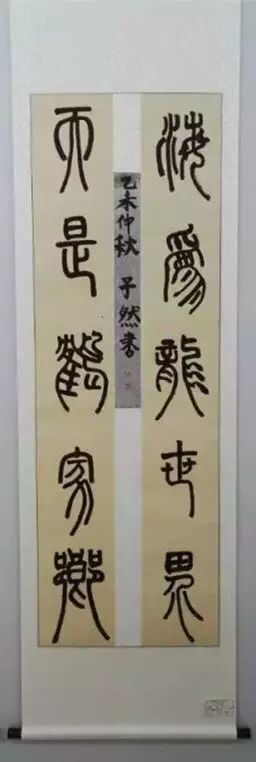 海為龍世界
天是鶴家鄉
乙未仲秋 子然書